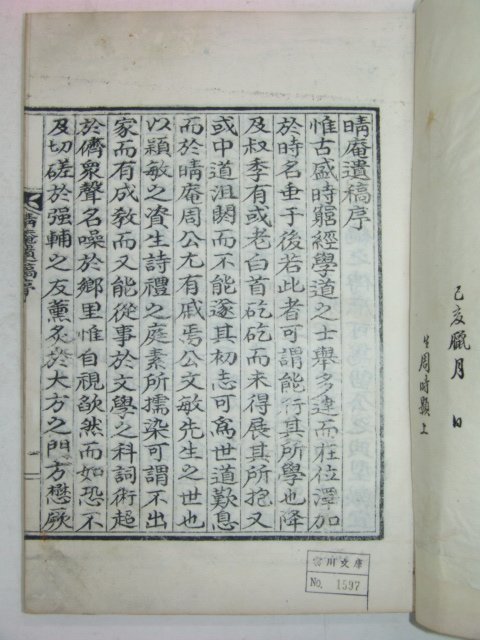 己亥臘月 日
生周時顯上
晴庵遺稿序
惟古盛時窮經學道之士舉多達而在位澤加
於時名垂于後若此者可謂能行其所學也降
及叔季有或老白首矻矻而未得展其所抱又
或中道沮閼而不能遂其初志可爲世道歎息
而於晴庵周公尤有戚焉公文敏先生之世也
以穎敏之資生詩禮之庭素所擩染可謂不出
家而有成教而又能從事於文學之科詞術超
於儕衆聲名噪於鄕里惟自視欿然而如恐不
及切磋於强輔之友薰炙於大方之門方懋厥
晴庵遺稿序
文庫
No. 1597